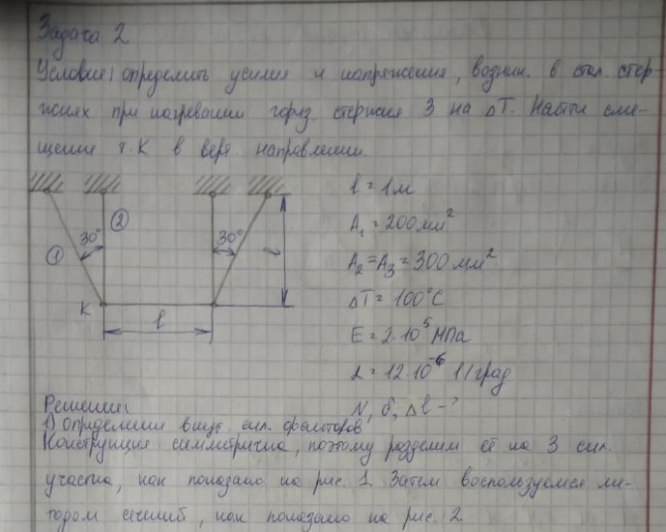 Задача 2
Условие: определить усилия и напряжения, возник. в стал. стер-
жнях при нагревании гориз. стержня 3 на ΔT. Найти сме-
щение т. К в верт. направлении.
l = 1м
A₁ = 200 мм²
② 30° 30°
①
A₂ = A₃ = 300 мм²
l
ΔT = 100°C
К
l
E = 2·10⁵ МПа
α = 12·10⁻⁶ 1/град
Решение:
N, σ, Δl - ?
1) Определим внутр. сил. факторов
Конструкция симметрична, поэтому разделим её на 3 сил.
участка, как показано на рис. 1. Затем воспользуемся ме-
тодом сечений, как показано на рис. 2.